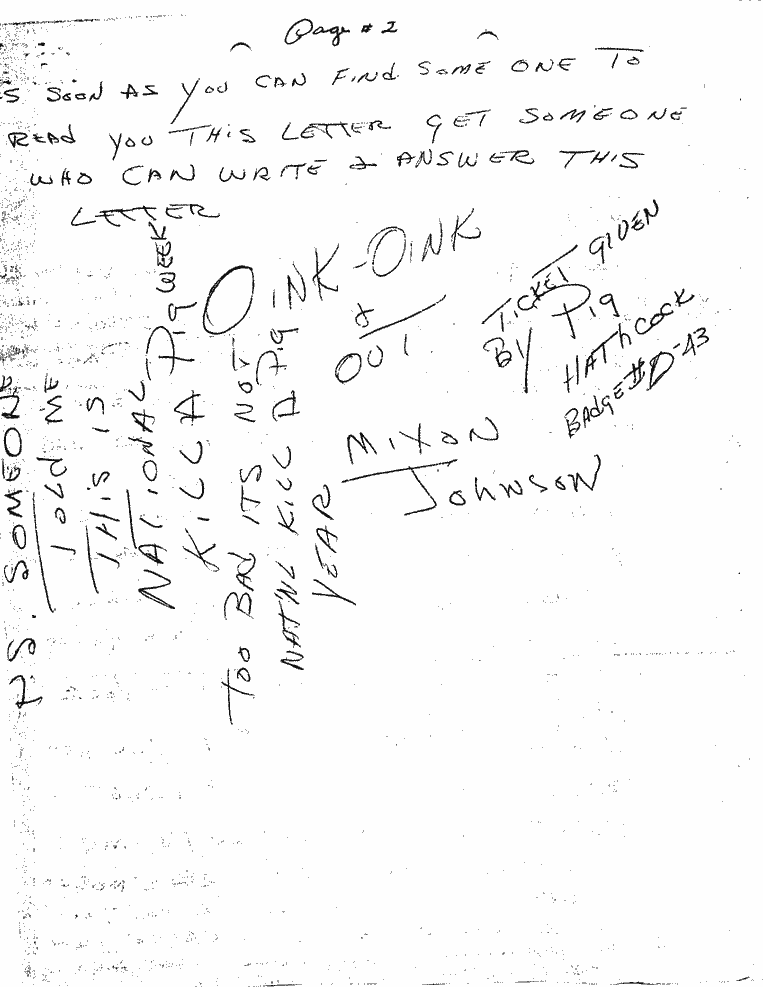 Page # 2
s soon AS you CAN FiNd SomE ONE To
READ you THiS LETTER GET SOMEONE
WHO CAN WRITE & ANSWER THIS
LETTER
OiNK-OiNK
&
OUT
TICKET GIVEN
By Pig
HATHCOCK
BADgE # D-43
MIXON
JohNSON
P.S. SOMEONE
TOLD ME
THiS IS
NATIONAL
KILL A Pig WEEK
TOO BAD ITS NOT
NAT'NL KILL A Pig
YEAR